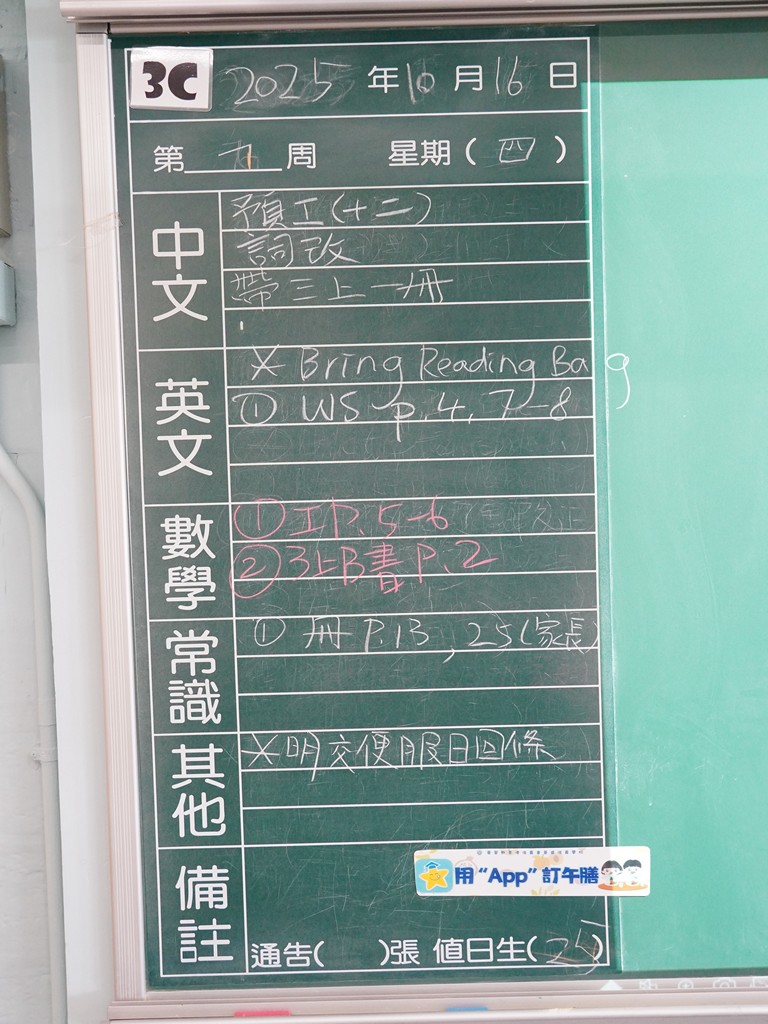 3C 2025年10月16日
第 九 周 星期(四)
中文
預工(十二)
詞改
帶三上一冊
英文
* Bring Reading Bag
① WS p.4, 7-8
數學
① 工P.5-6
② 3上B書P.2
常識
① 冊P.13, 25(家長)
其他
*明交便服日回條
備註
用“App”訂午膳
通告( )張 值日生(25)